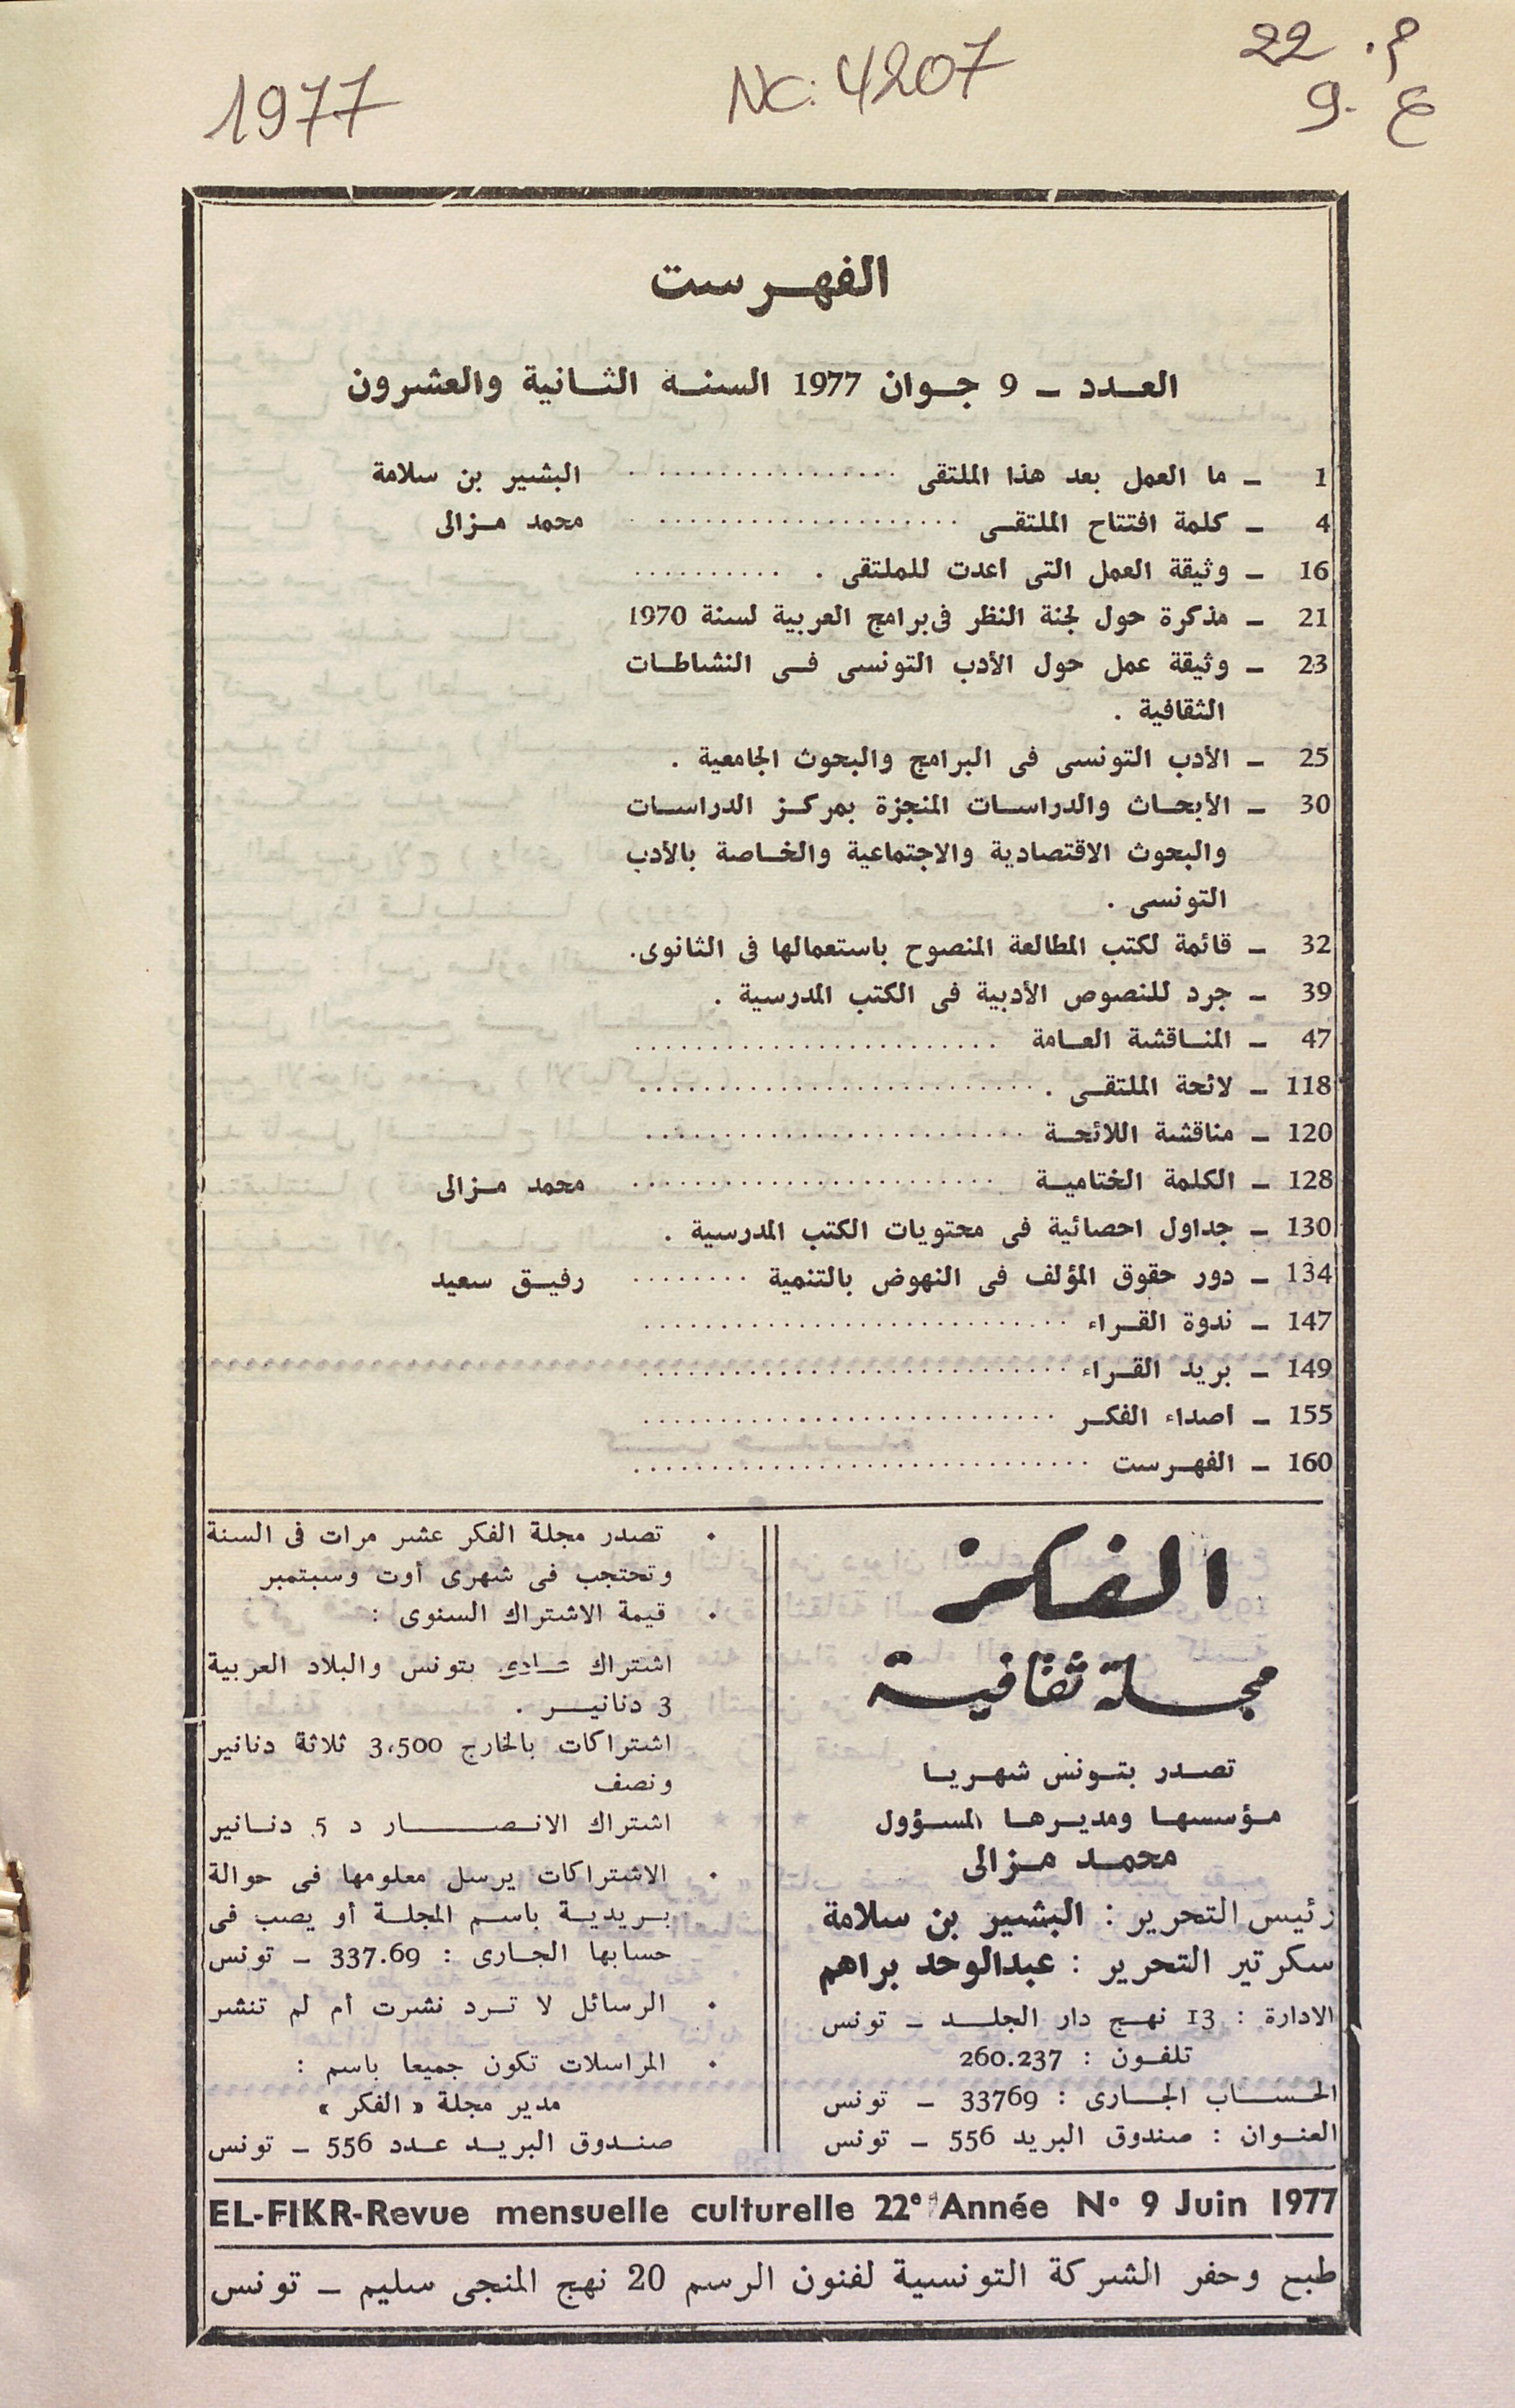 1977
NC: 4207
م. 22
ع 9.
الفهرست
العدد ـ 9 جوان 1977 السنة الثانية والعشرون
1 ـ ما العمل بعد هذا الملتقى ................. البشير بن سلامة
4 ـ كلمة افتتاح الملتقى ..................... محمد مزالى
16 ـ وثيقة العمل التى أعدت للملتقى . ..........
21 ـ مذكرة حول لجنة النظر فى برامج العربية لسنة 1970
23 ـ وثيقة عمل حول الأدب التونسى فى النشاطات
الثقافية .
25 ـ الأدب التونسى فى البرامج والبحوث الجامعية .
30 ـ الأبحاث والدراسات المنجزة بمركز الدراسات
والبحوث الاقتصادية والاجتماعية والخاصة بالأدب
التونسى .
32 ـ قائمة لكتب المطالعة المنصوح باستعمالها فى الثانوى.
39 ـ جرد للنصوص الأدبية فى الكتب المدرسية .
47 ـ المناقشة العامة ........................
118 ـ لائحة الملتقى ...........................
120 ـ مناقشة اللائحة .........................
128 ـ الكلمة الختامية ........................ محمد مزالى
130 ـ جداول احصائية فى محتويات الكتب المدرسية .
134 ـ دور حقوق المؤلف فى النهوض بالتنمية ........ رفيق سعيد
147 ـ ندوة القراء ............................
149 ـ بريد القراء ............................
155 ـ أصداء الفكر ...........................
160 ـ الفهرست ..............................
الفكر
مجلة ثقافية
تصدر بتونس شهريا
مؤسسها ومديرها المسؤول
محمد مزالى
رئيس التحرير : البشير بن سلامة
سكرتير التحرير : عبدالوحد براهم
الادارة : 13 نهج دار الجلد ـ تونس
تلفون : 260.237
الحساب الجارى : 33769 ـ تونس
العنوان : صندوق البريد 556 ـ تونس
• تصدر مجلة الفكر عشر مرات فى السنة
وتحتجب فى شهرى أوت وسبتمبر
• قيمة الاشتراك السنوى :
اشتراك عادى بتونس والبلاد العربية
3 دنانير .
اشتراكات بالخارج 3،500 ثلاثة دنانير
ونصف
اشتراك الانصار د 5 دنانير
• الاشتراكات يرسل معلومها فى حوالة
بريدية باسم المجلة أو يصب فى
حسابها الجارى : 337.69 ـ تونس
• الرسائل لا ترد نشرت أم لم تنشر
• المراسلات تكون جميعا باسم :
مدير مجلة « الفكر »
صندوق البريد عدد 556 ـ تونس
EL-FIKR-Revue mensuelle culturelle 22e Année N° 9 Juin 1977
طبع وحفر الشركة التونسية لفنون الرسم 20 نهج المنجى سليم ـ تونس